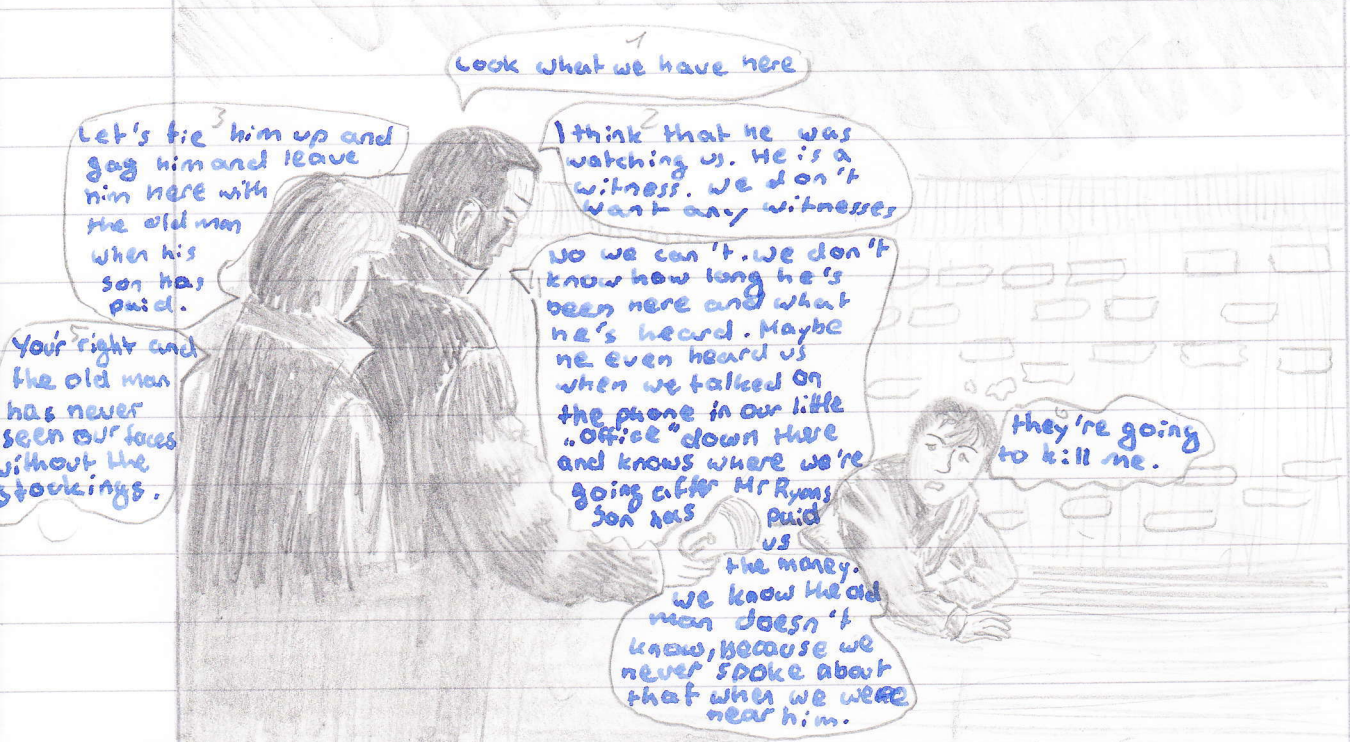 1
Look what we have here
2
I think that he was
watching us. He is a
witness. We don't
want any witnesses
3
Let's tie him up and
gag him and leave
him here with
the old man
when his
son has
paid.
No we can't. We don't
know how long he's
been here and what
he's heard. Maybe
he even heard us
when we talked on
the phone in our little
„office" down there
and knows where we're
going after Mr Ryans
son has paid
us
the money.
we know the old
man doesn't
know, because we
never spoke about
that when we were
near him.
5
Your right and
the old man
has never
seen our faces
without the
stockings.
6
they're going
to kill me.